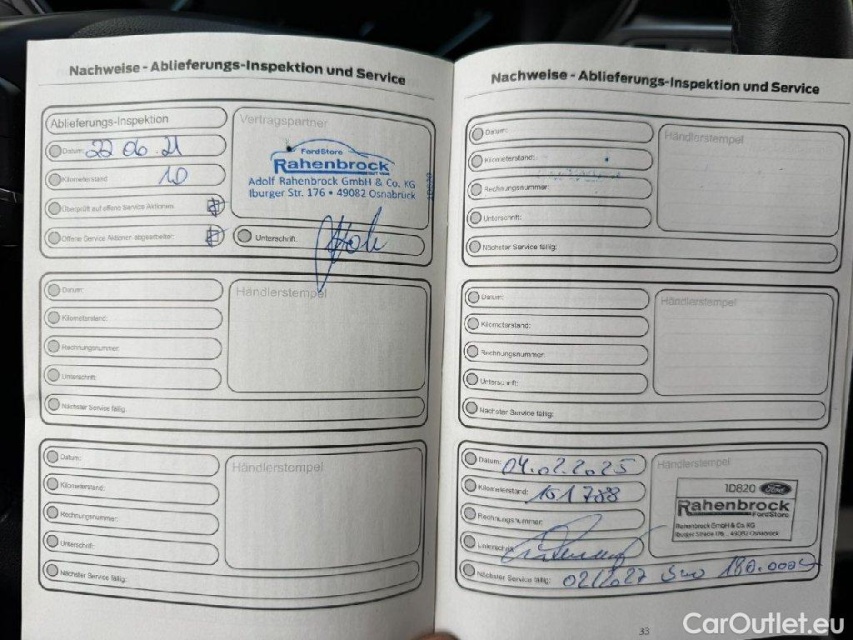 Nachweise - Ablieferungs-Inspektion und Service
Ablieferungs-Inspektion
Datum: 22 06. 21
Kilometerstand 10
Überprüft auf offene Service Aktionen:
Offene Service Aktionen abgearbeitet:
Vertragspartner
FordStore
Rahenbrock
Adolf Rahenbrock GmbH & Co. KG
Iburger Str. 176 • 49082 Osnabrück
Unterschrift:
Datum:
Kilometerstand:
Rechnungsnummer:
Unterschrift:
Nächster Service fällig:
Händlerstempel
Datum:
Kilometerstand:
Rechnungsnummer:
Unterschrift:
Nächster Service fällig:
Händlerstempel
Nachweise - Ablieferungs-Inspektion und Service
Datum:
Kilometerstand:
Rechnungsnummer:
Unterschrift:
Nächster Service fällig:
Händlerstempel
Datum:
Kilometerstand:
Rechnungsnummer:
Unterschrift:
Nächster Service fällig:
Händlerstempel
Datum: 04.02.2025
Kilometerstand: 151788
Rechnungsnummer:
Unterschrift:
Nächster Service fällig: 02/2027
Händlerstempel
1D820 Ford
Rahenbrock
FordStore
Rahenbrock GmbH & Co. KG
Iburger Straße 176, 49082 Osnabrück
33
CarOutlet.eu